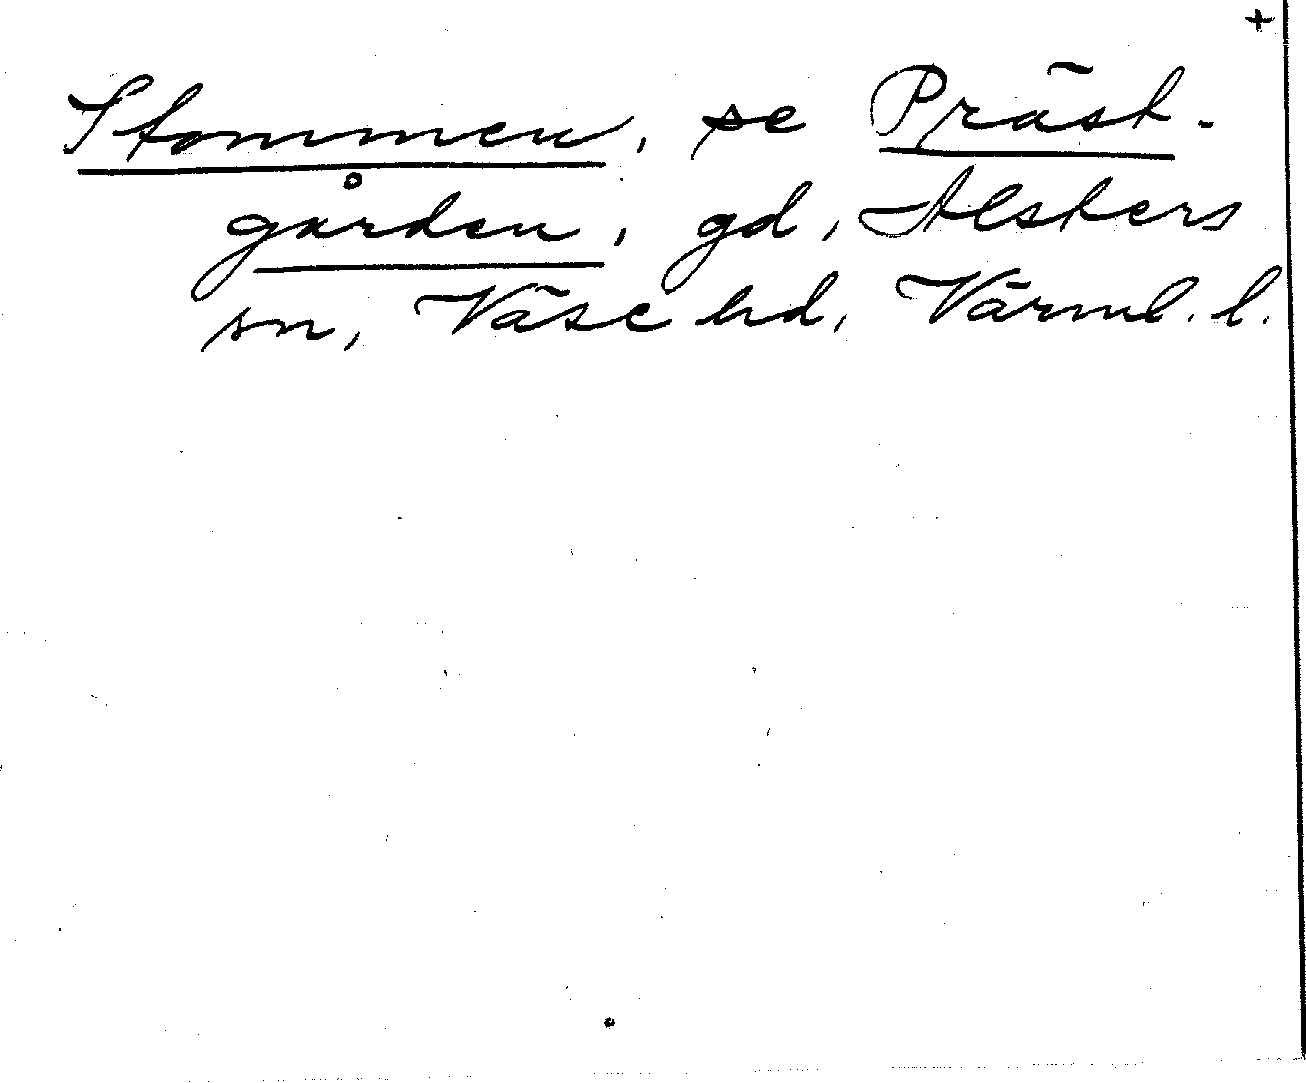 +
Stommen, se Präst-
gården, gd, Alsters
sn, Väse hd, Värml. l.